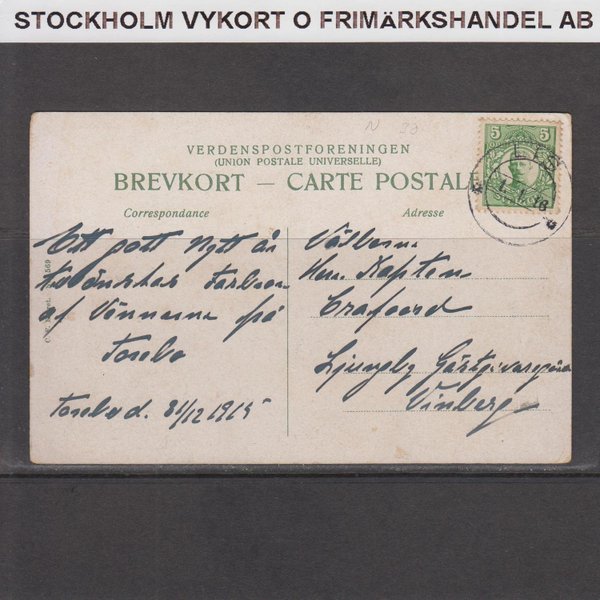 STOCKHOLM VYKORT O FRIMÄRKSHANDEL AB
VERDENSPOSTFORENINGEN
(UNION POSTALE UNIVERSELLE)
BREVKORT — CARTE POSTALE
Correspondance
Adresse
5 5
1.1.16
Ett gott nytt år
tillönskas Farbror
af Vännerna på
Torebo
Torebo d. 31/12 1915
Välborne
Herr Kapten
Crafoord
Ljungby Gästgivaregård
Vinberg